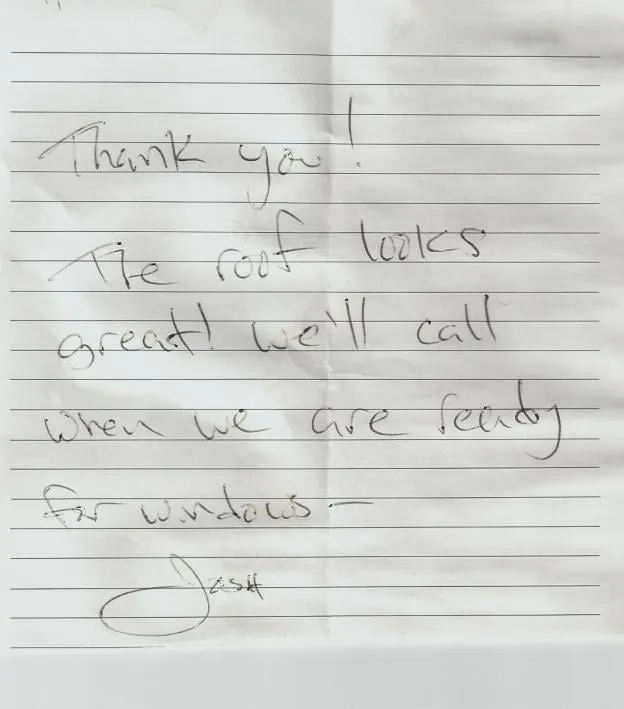 Thank you!
The roof looks
great! we'll call
when we are ready
for windows –
Josh